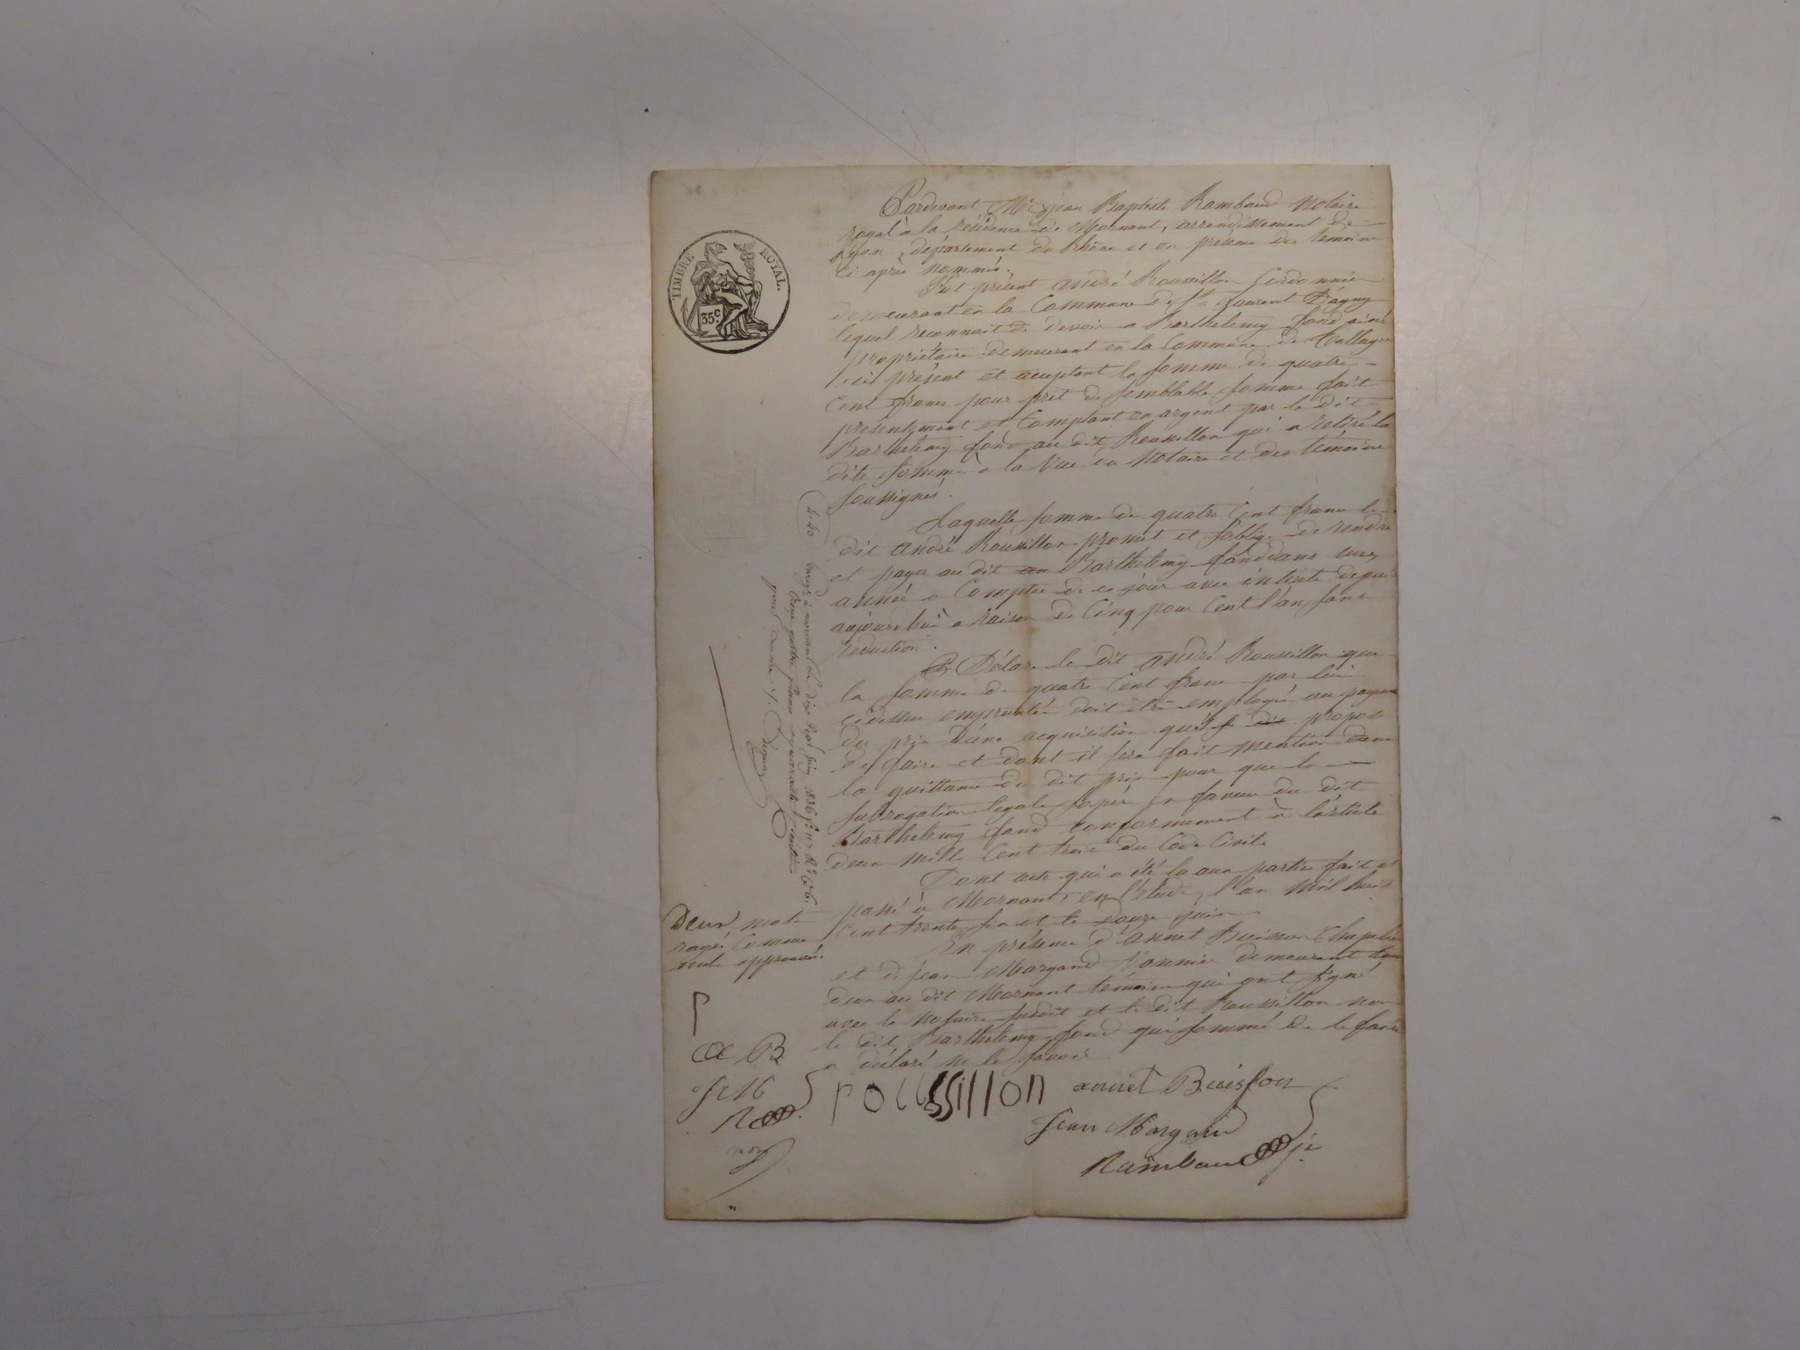 TIMBRE ROYAL.
35c.
Pardevant Me jean Baptiste Rambaud Notaire
royal à la résidence de Mornant, arrondissement de
Lyon, département du Rhône et en présence des témoins
ci après nommés.
Fut présent andré Roussillon Cordonnier
demeurant en la Commune de St laurent Dagny
lequel reconnait de devoir a Barthelemy fond ainé
propriétaire demeurant en la Commune de
ici présent et acceptant la somme de quatre
Cent franc pour prêt de semblable somme fait
présentement et Comptant en argent par le dit
Barthelemy fond au dit Roussillon qui a retiré la
dite somme a la Vue du Notaire et des témoins
soussignés.
Laquelle somme de quatre Cent franc le
dit andré Roussillon promet et soblige de rendre
et payer au dit au Barthelemy fond dans une
année a Compter de ce jour avec intérêt depuis
aujourdhui a raison de Cinq pour Cent l'an sans
réduction.
Déclare le dit andré Roussillon que
la somme de quatre Cent franc par lui
cidessus empruntée doit être employé au payement
du prix d'une acquisition qu'il se dit propose
de faire et dont il sera fait mention dans
la quittance du dit prix pour que la
subrogation légale sopére en faveur du dit
Barthelemy fond conformement à larticle
deux mille Cent trois du Code Civile
Dont acte qui a été lu aux parties fait et
passé à Mornant, en l'étude, l'an Mil huit
Cent trente six et le douze juin
En présence d'annet Buisson Chapelier
et de jean Morgand Vannier demeurant tous
deux au dit Mornant témoins qui ont signé
avec le Notaire susdit et le dit Roussillon non
le dit Barthelemy fond qui sommé de le faire
a déclaré ne le savoir.
Deux mots
rayés Comme
nuls approuvés.
r
a B
J M
R
roussillon
annet Buisson
Jean Morgand
Rambaud
4.40
Enregé à mornant le dix sept juin 1836 fo 117
Reçu quatre francs quarante centimes